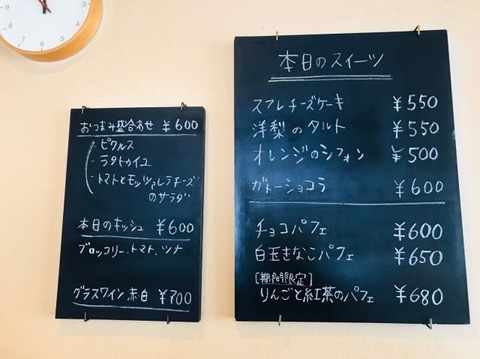 おつまみ盛合わせ ¥600
・ピクルス
・ラタトゥイユ
・トマトとモッツァレラチーズ
のサラダ
本日のキッシュ ¥600
ブロッコリー、トマト、ツナ
グラスワイン 赤・白 ¥700
本日のスイーツ
スフレチーズケーキ ¥550
洋梨のタルト ¥550
オレンジのシフォン ¥500
ガトーショコラ ¥600
チョコパフェ ¥600
白玉きなこパフェ ¥650
[期間限定]
りんごと紅茶のパフェ ¥680